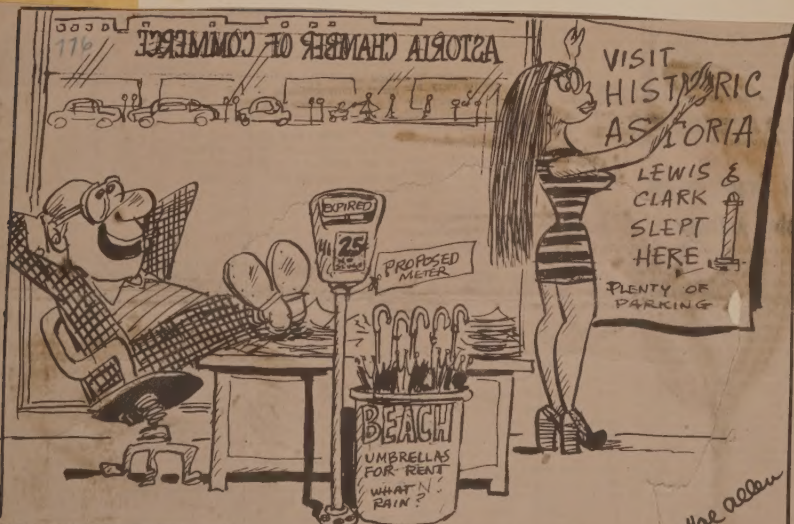 776
ASTORIA CHAMBER OF COMMERCE
VISIT
HISTORIC
ASTORIA
LEWIS &
CLARK
SLEPT
HERE
PLENTY OF
PARKING
EXPIRED
25
PROPOSED
METER
BEACH
UMBRELLAS
FOR RENT
WHAT
RAIN?
Hal Allen